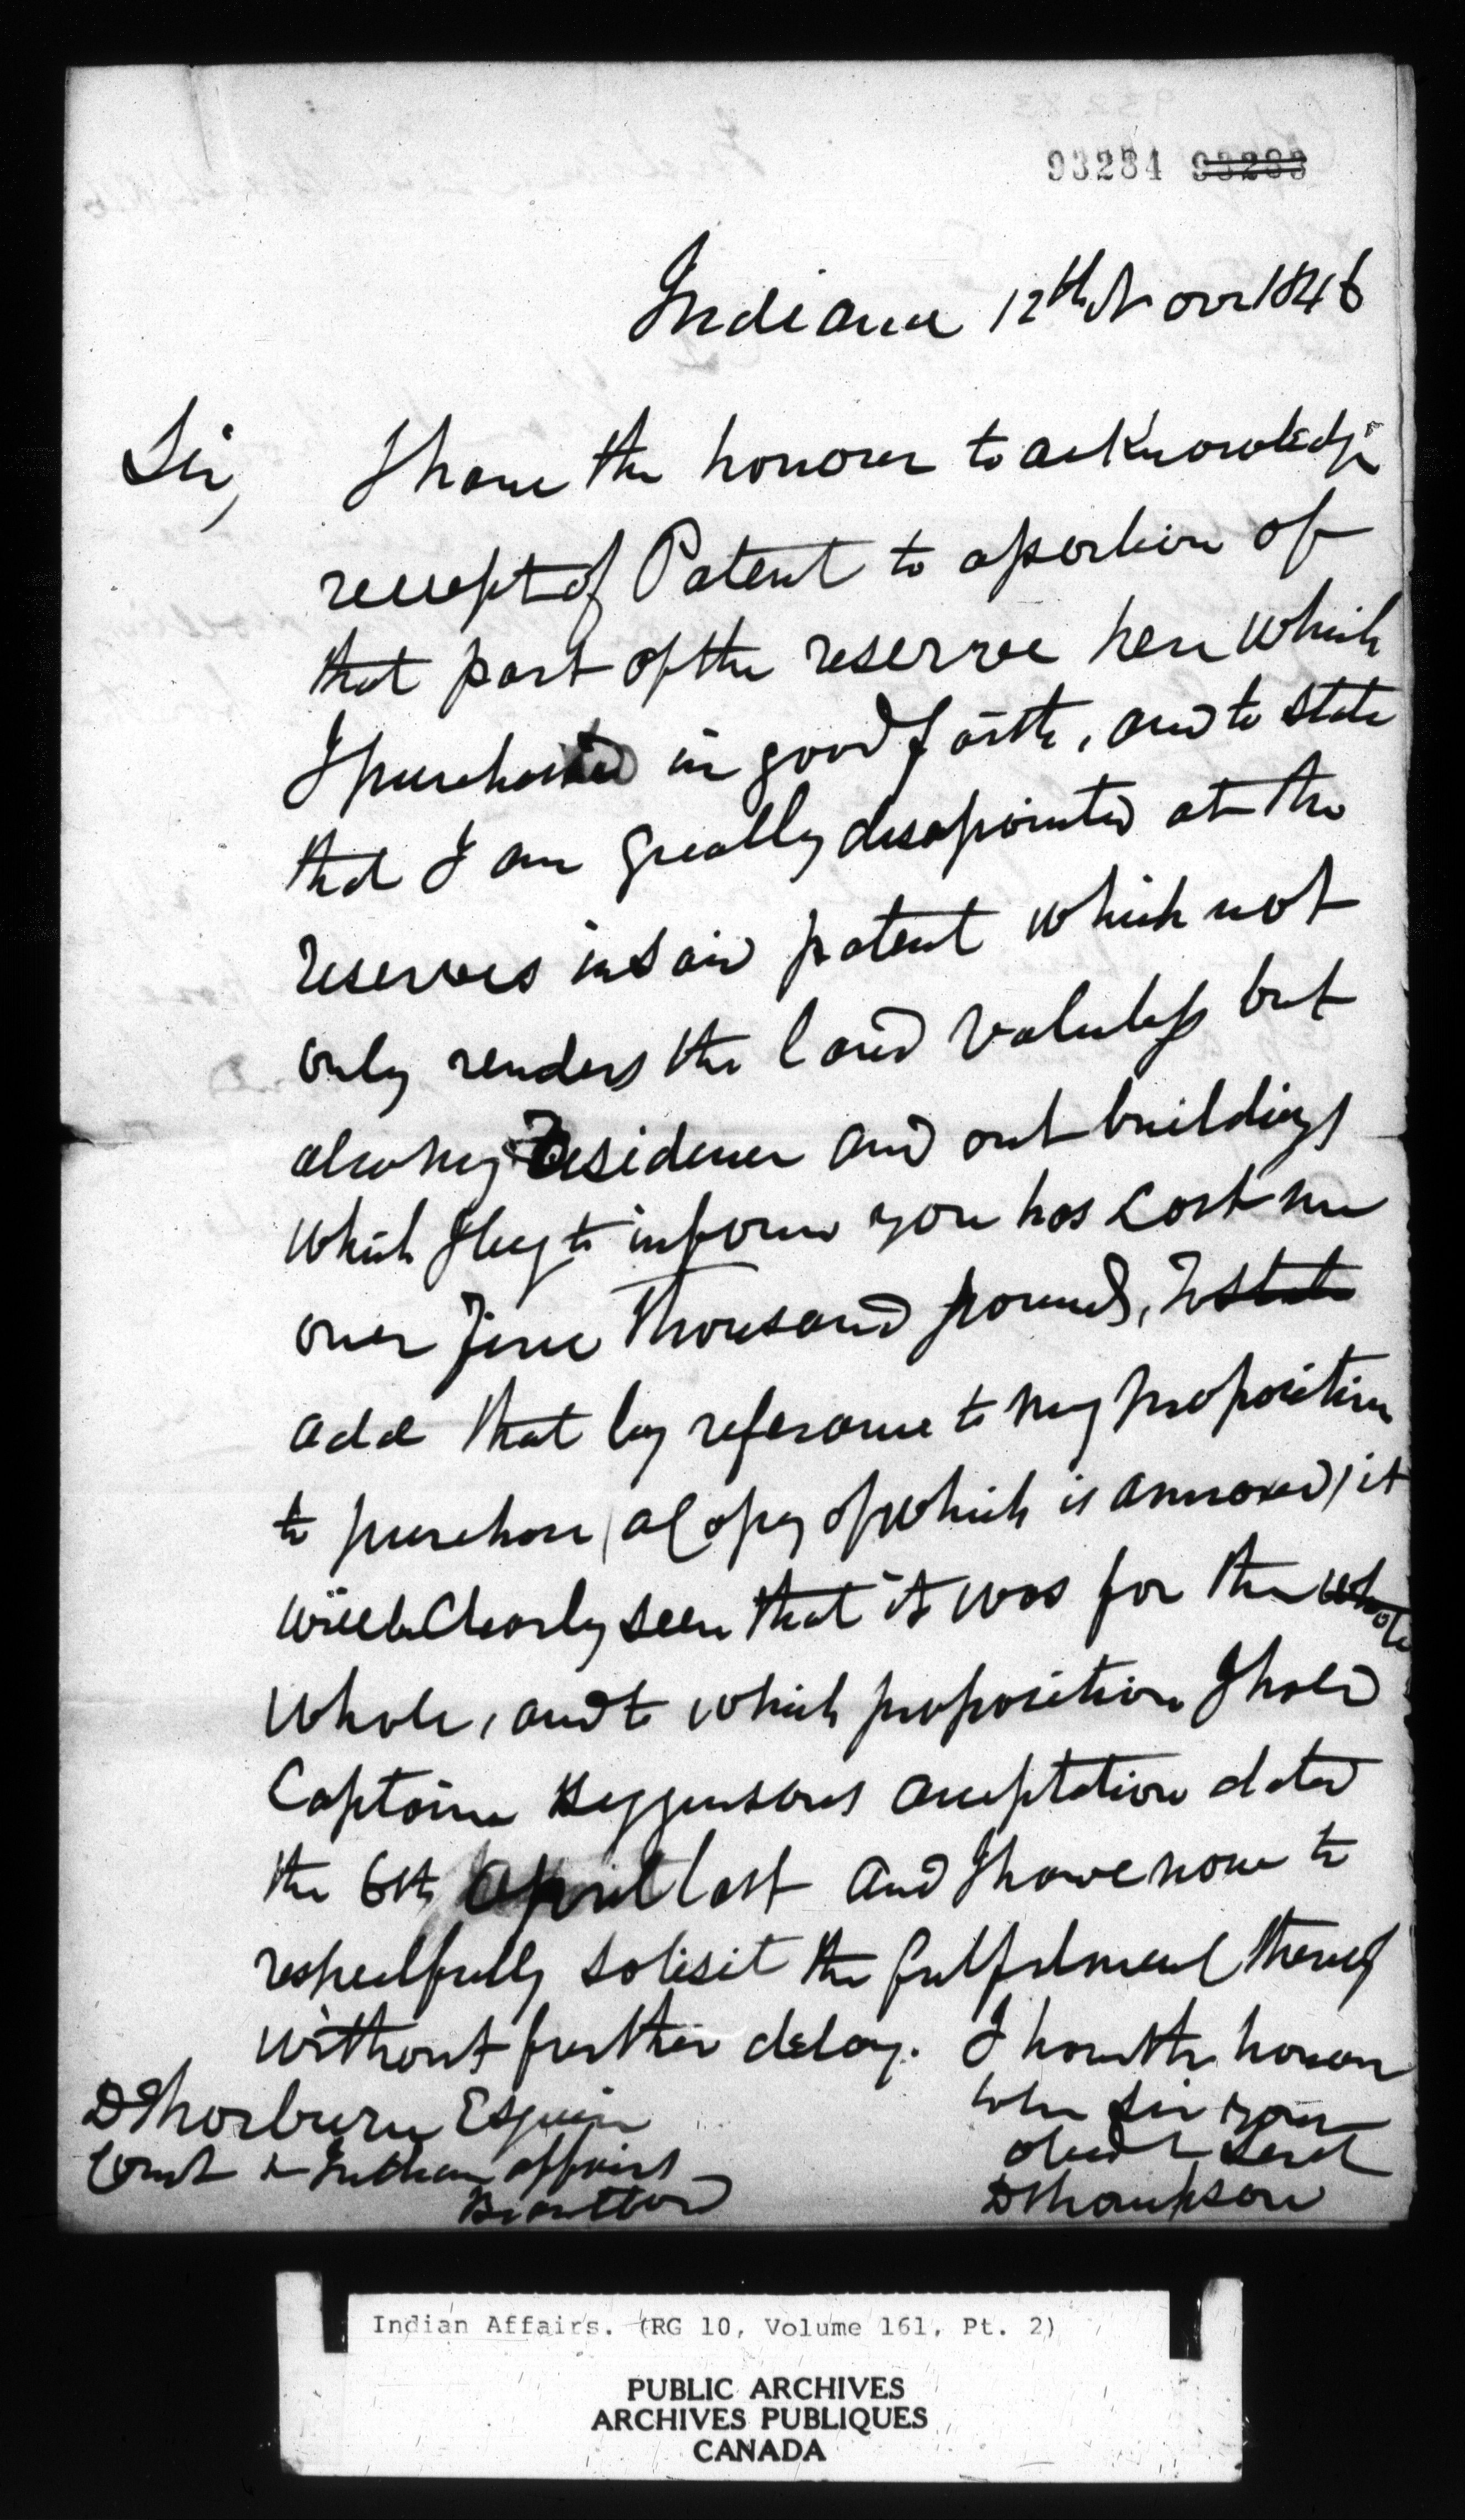 93284 93283
Indiana 12th Novr 1846
Sir, I have the honour to acknowledge
receept of Patent to a portion of
that part of the reserve here which
I purchased in good faith, and to state
that I am greatly disapointed at the
reserves in said patent which not
only renders the land valueless but
also my Residence and out buildings
which I beg to inform you has cost me
over five Thousand pounds, To state
add that by referance to my proposition
to purchase (a Copy of which is annexed) it
will be Clearly seen that it was for the whole
whole, and to which proposition I hold
Captain Higginsons acceptation dated
the 6th April last and I have now to
respectfully solisit the fulfilment thereof
without further delay. I have the honour
to be Sir your
obedt Servt
D Thompson
D Thorburn Esquire
Comr Indian affairs
Brantford
Indian Affairs. (RG 10, Volume 161, Pt. 2)
PUBLIC ARCHIVES
ARCHIVES PUBLIQUES
CANADA